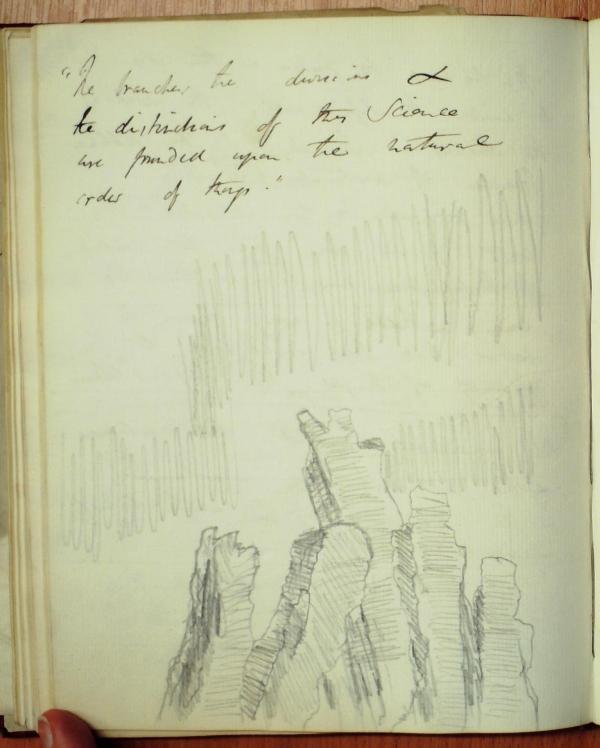 "The branches the divisions &
the distinctions of this Science
are founded upon the natural
order of things."